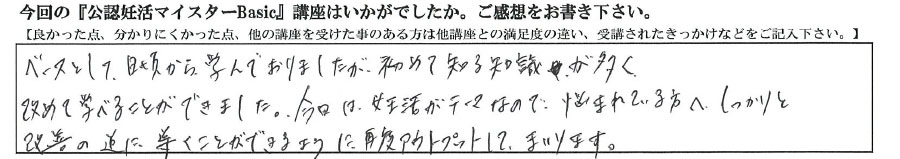 今回の『公認妊活マイスターBasic』講座はいかがでしたか。ご感想をお書き下さい。
【良かった点、分かりにくかった点、他の講座を受けた事のある方は他講座との満足度の違い、受講されたきっかけなどをご記入下さい。】
ベースとして、日頃から学んでおりましたが、初めて知る知識が多く、
改めて学べることができました。今回は、妊活がテーマなので、悩まれている方へ、しっかりと
改善の道に導くことができるように再度アウトプットして、まいります。